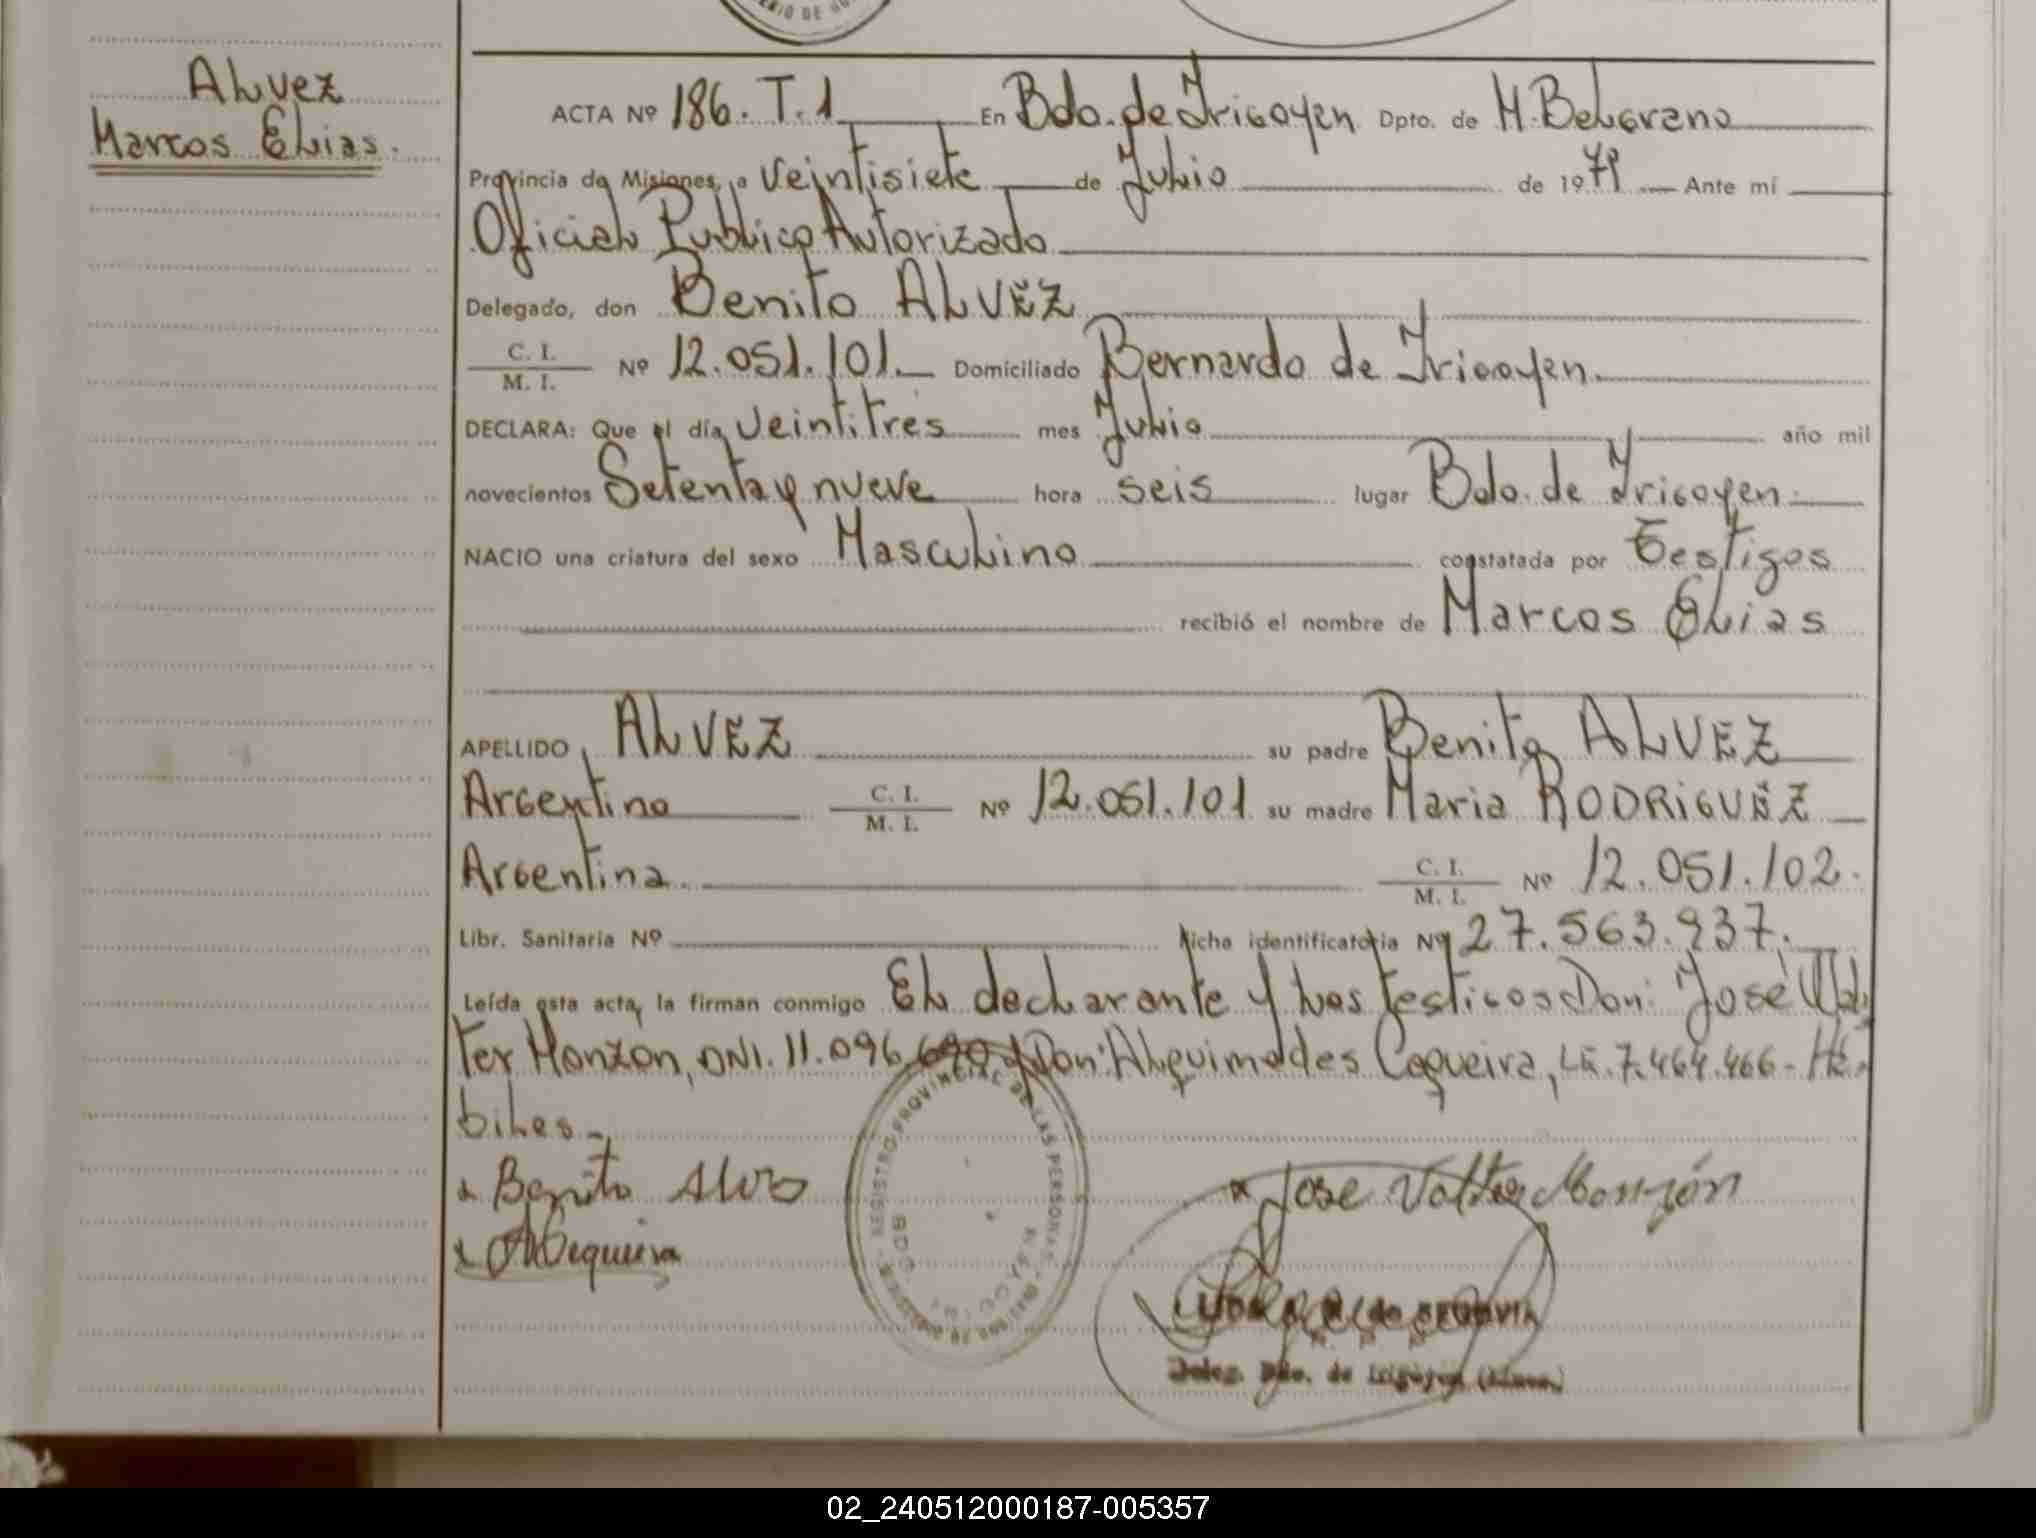 ERIO DE
Alvez
Marcos Elias.
ACTA Nº 186. T. 1 En Bdo. de Irigoyen Dpto. de M. Belgrano
Provincia de Misiones, a veintisiete de Julio de 1979 Ante mí
Oficial Publico Autorizado
Delegado, don Benito ALVEZ
C. I.
M. I. Nº 12.051.101. Domiciliado Bernardo de Irigoyen.
DECLARA: Que el día veintitres mes Julio año mil
novecientos Setenta y nueve hora seis lugar Bdo. de Irigoyen.
NACIO una criatura del sexo Masculino constatada por Testigos
recibió el nombre de Marcos Elias
APELLIDO ALVEZ su padre Benito ALVEZ
Argentino C. I. M. I. Nº 12.051.101 su madre Maria RODRIGUEZ
Argentina. C. I. M. I. Nº 12.051.102.
Libr. Sanitaria Nº Ficha identificatoria Nº 27.563.937.
Leída esta acta, la firman conmigo El declarante y los testigos Don: José Wal
ter Monzon, DNI. 11.096.690 y Don: Alquimedes Cequeira, LE. 7.464.466 - Há
biles.-
x Benito Alves x Jose Valter Monzón
x A Cequeira
REGISTRO PROVINCIAL DE LAS PERSONAS
de SEGOVIA
Deleg. Bdo. de Irigoyen (Mnes.)
02_240512000187-005357